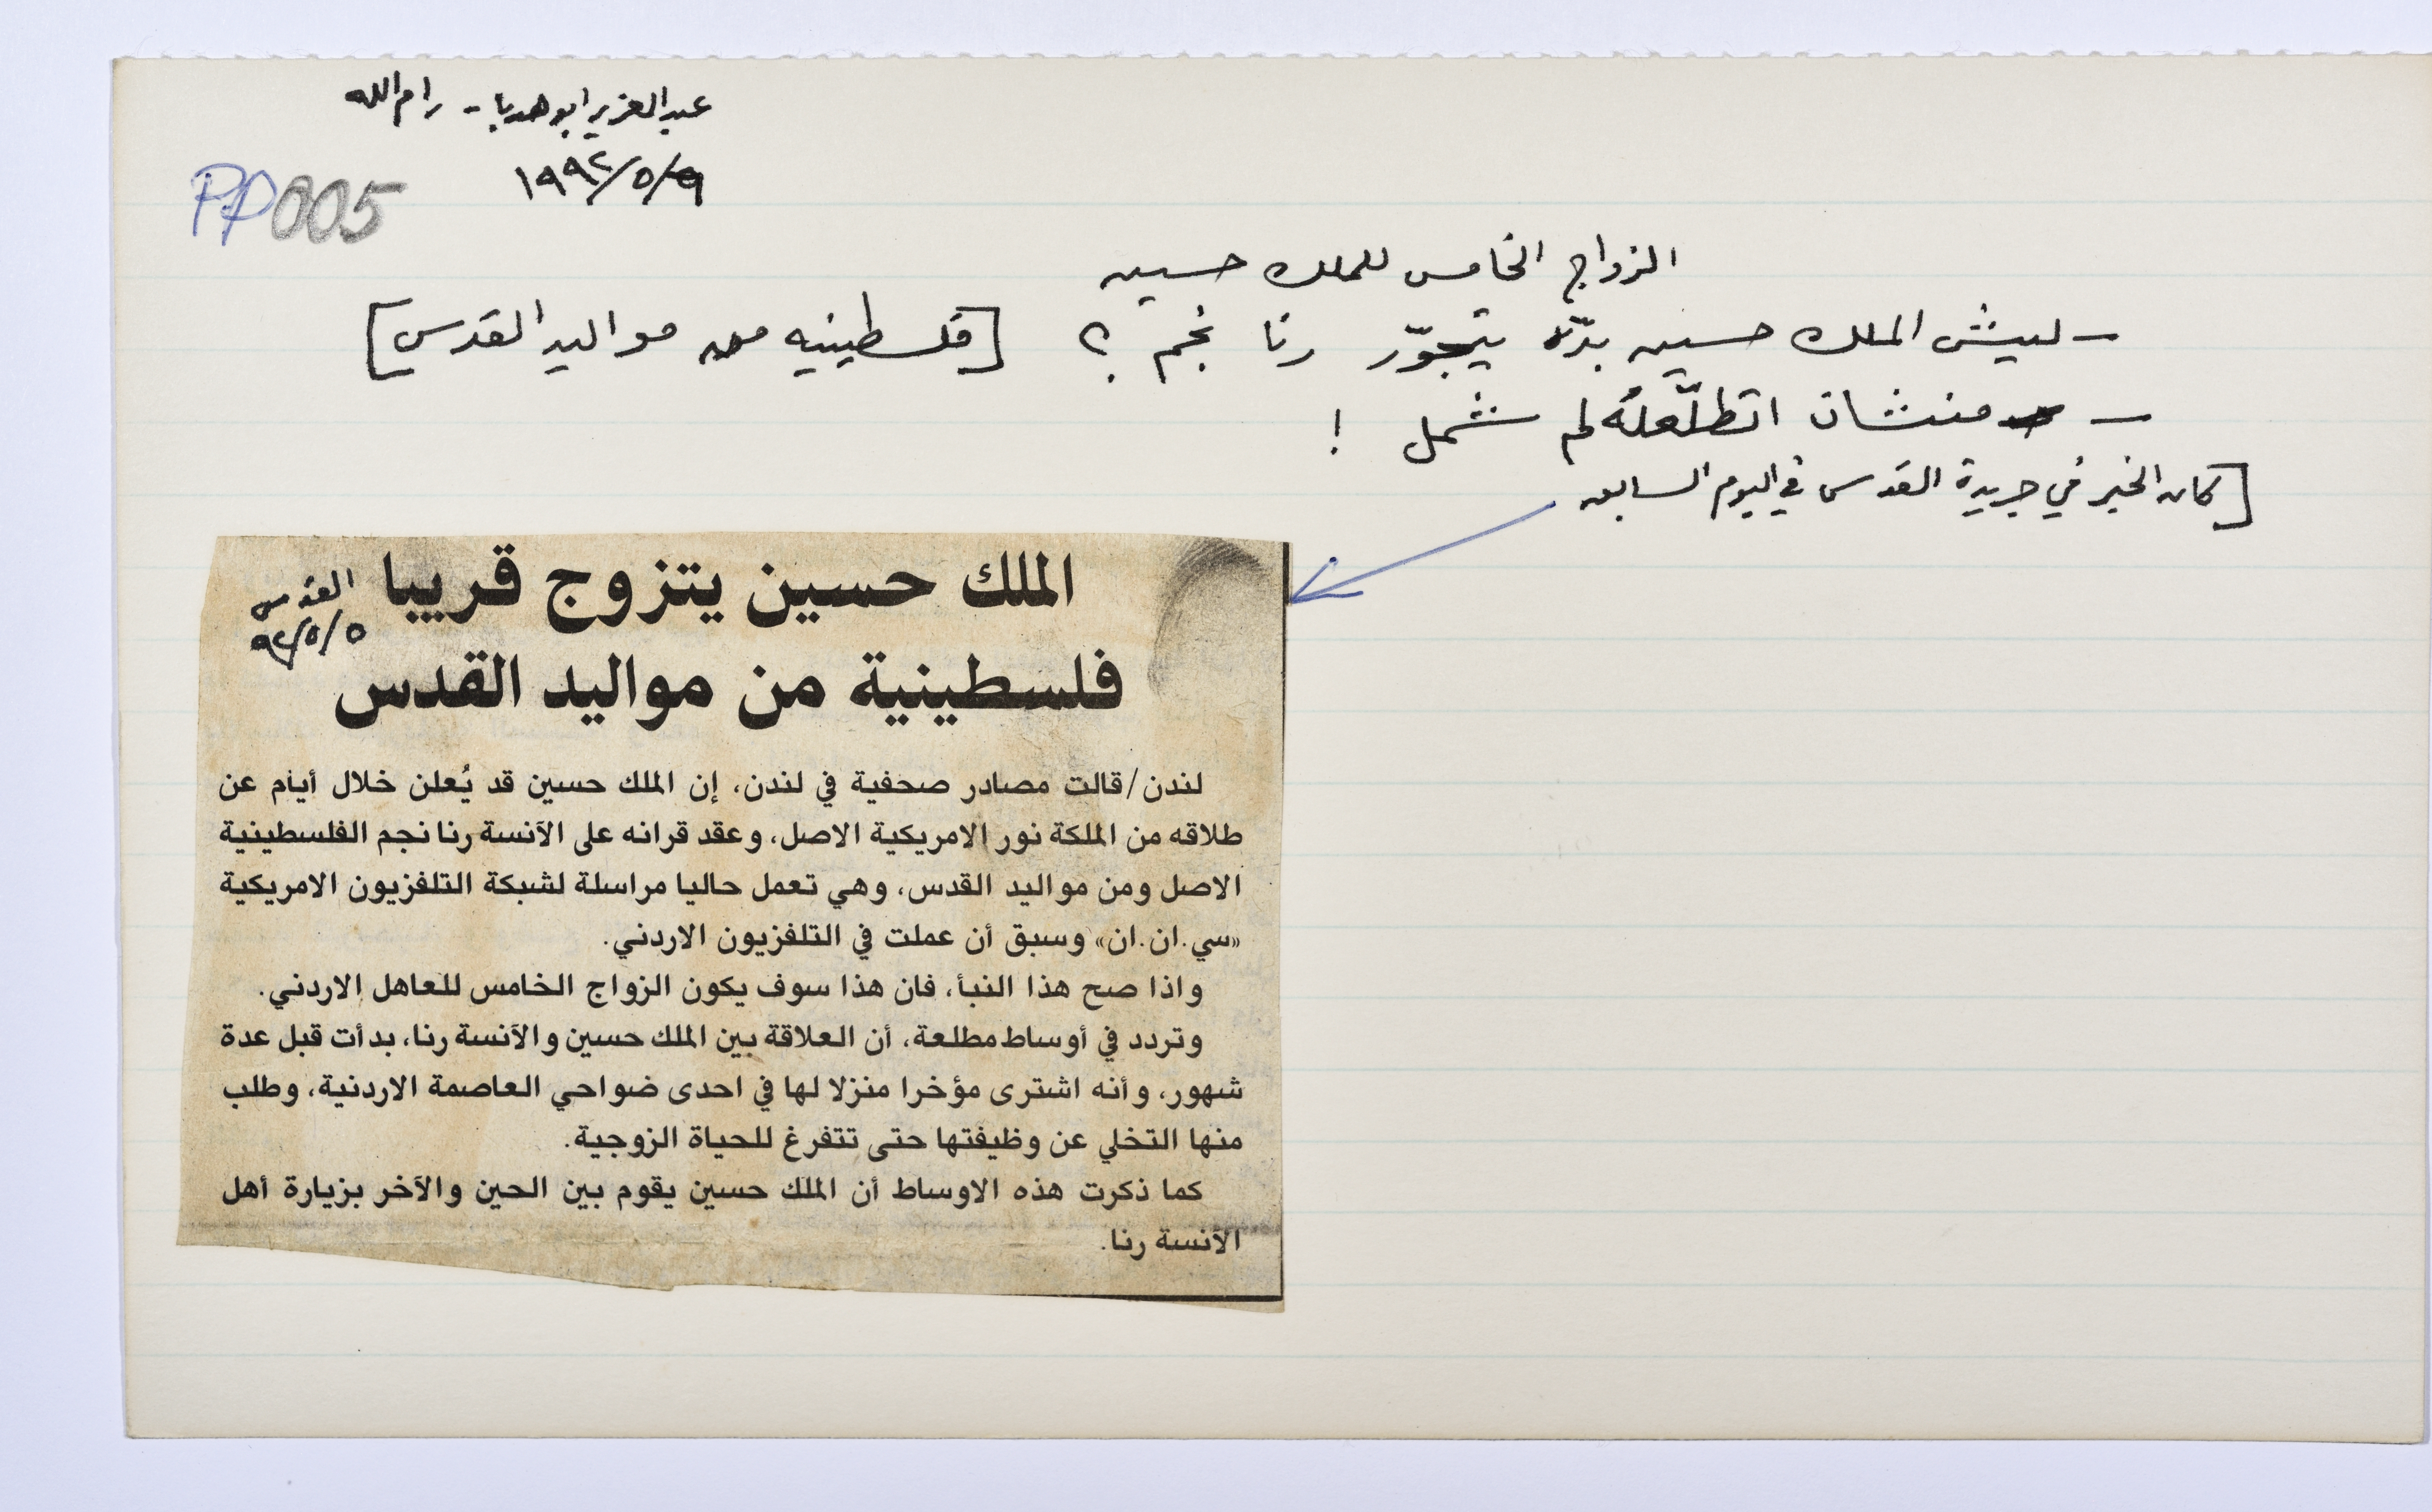 عبد العزيز ابو هدبا - رام الله
١٩٩٢/٥/٩
PP005
الزواج الخامس للملك حسين
- ليش الملك حسين بدّه يتجوّز رنا نجم ؟ [فلسطينيه من مواليد القدس]
- منشان اتطلّعله لم شمل !
[كان الخبر في جريدة القدس في اليوم السابق
الملك حسين يتزوج قريبا
فلسطينية من مواليد القدس
القدس
٩٢/٥/٥
لندن/قالت مصادر صحفية في لندن، إن الملك حسين قد يُعلن خلال أيام عن
طلاقه من الملكة نور الامريكية الاصل، وعقد قرانه على الآنسة رنا نجم الفلسطينية
الاصل ومن مواليد القدس، وهي تعمل حاليا مراسلة لشبكة التلفزيون الامريكية
«سي.ان.ان» وسبق أن عملت في التلفزيون الاردني.
واذا صح هذا النبأ، فان هذا سوف يكون الزواج الخامس للعاهل الاردني.
وتردد في أوساط مطلعة، أن العلاقة بين الملك حسين والآنسة رنا، بدأت قبل عدة
شهور، وأنه اشترى مؤخرا منزلا لها في احدى ضواحي العاصمة الاردنية، وطلب
منها التخلي عن وظيفتها حتى تتفرغ للحياة الزوجية.
كما ذكرت هذه الاوساط أن الملك حسين يقوم بين الحين والآخر بزيارة أهل
الآنسة رنا.